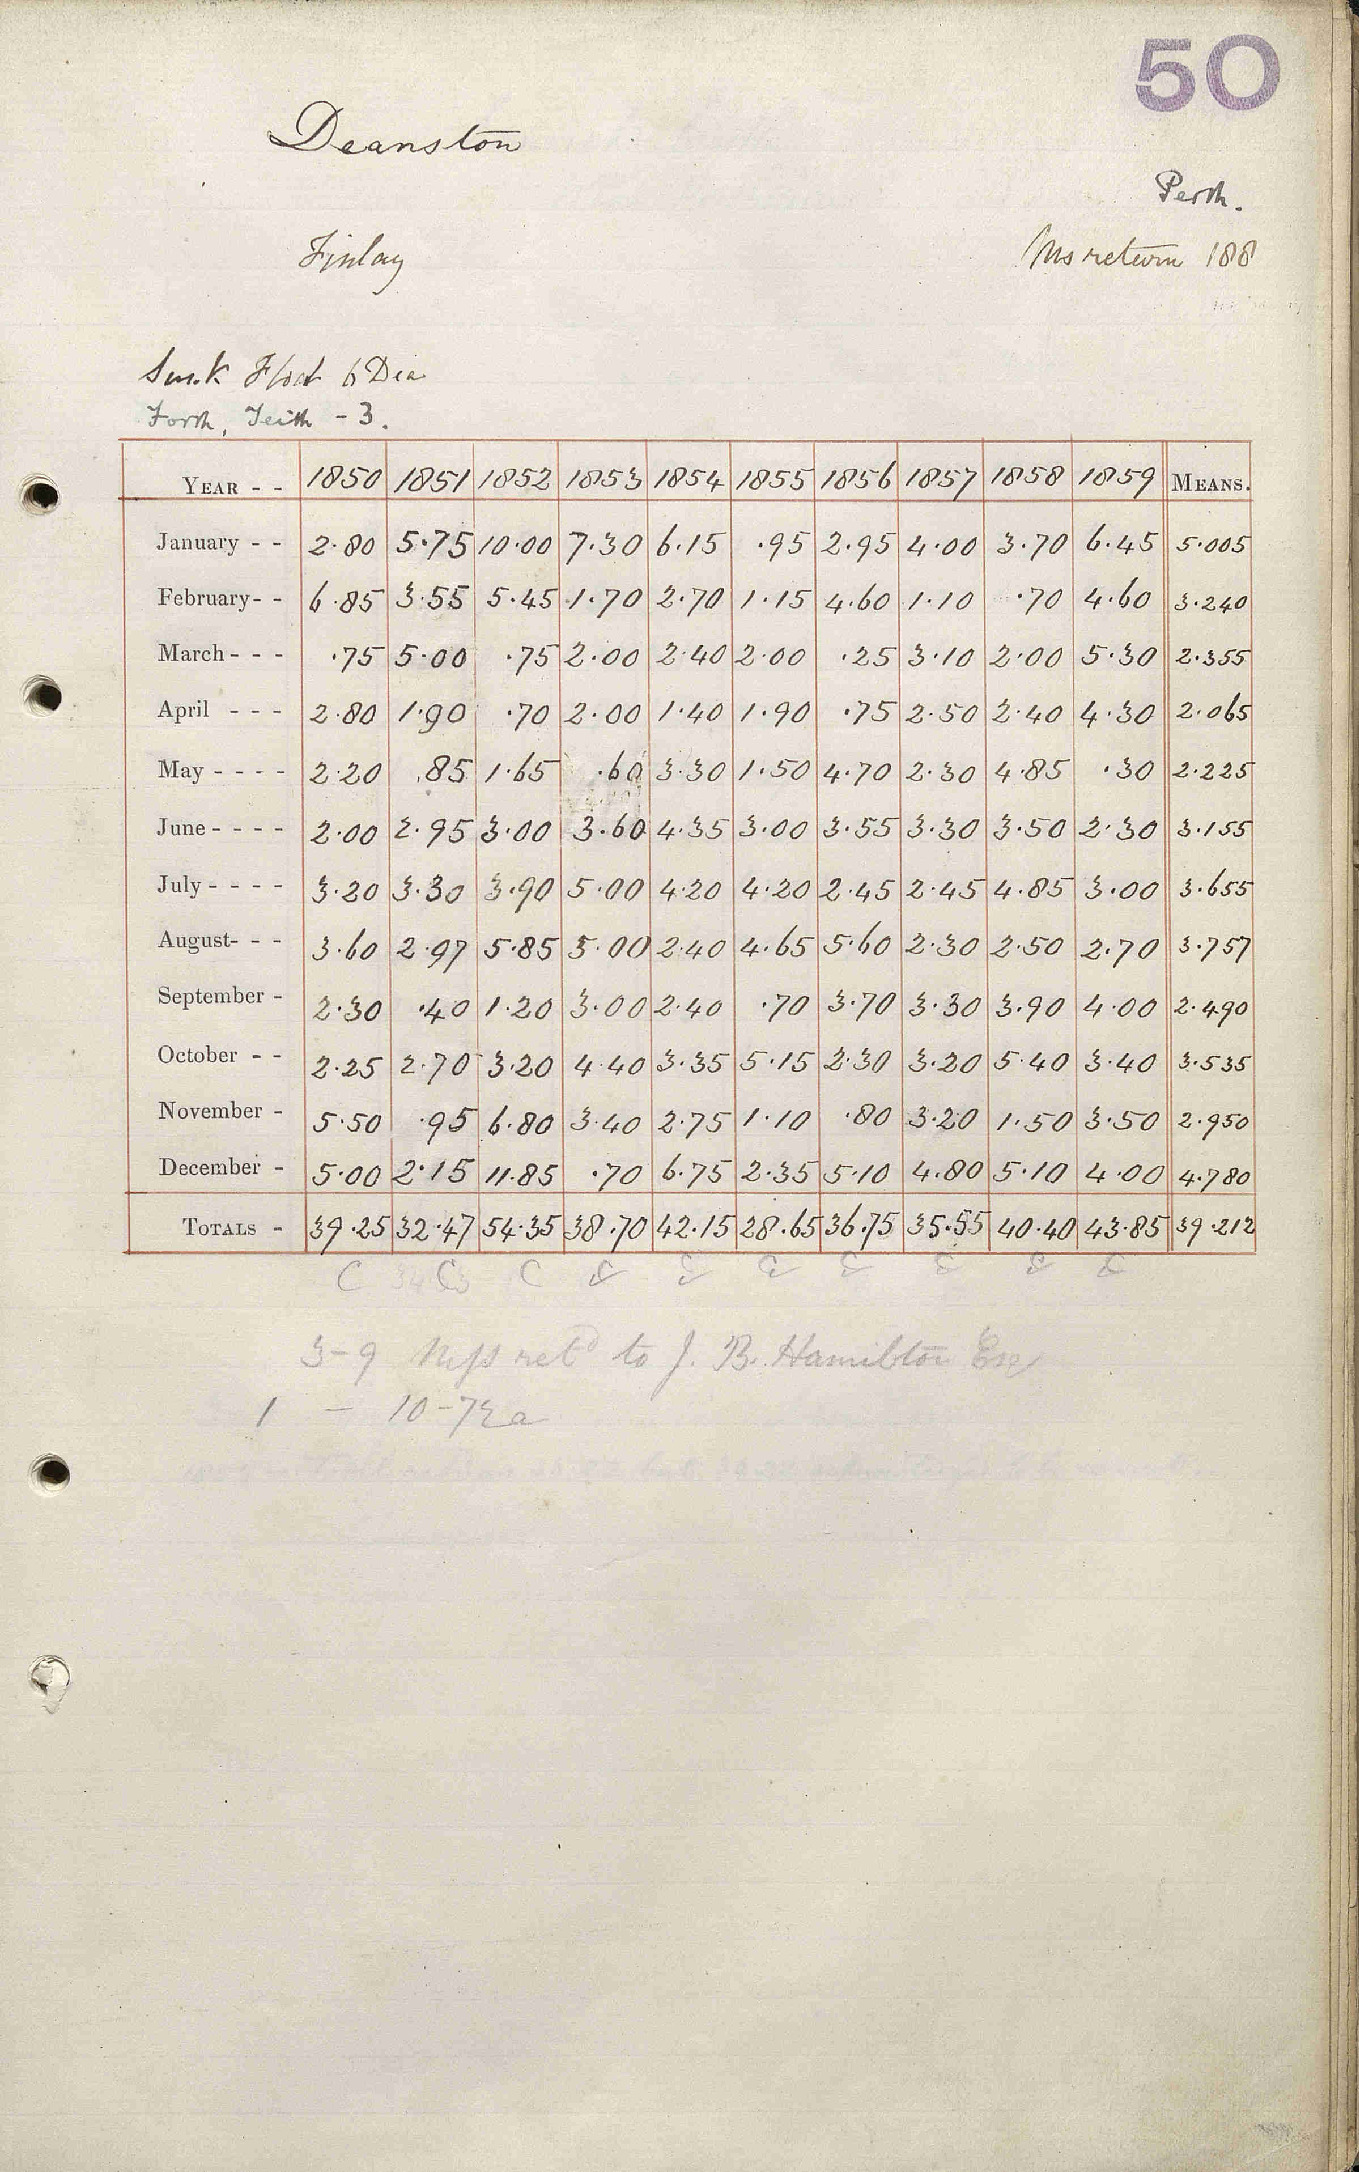 50
Deanston
Perth.
Finlay
Ms return 188
Sunk Float 6 Dia
Forth, Teith - 3.
YEAR - - 1850 1851 1852 1853 1854 1855 1856 1857 1858 1859 MEANS.
January - - 2.80 5.75 10.00 7.30 6.15 .95 2.95 4.00 3.70 6.45 5.005
February - - 6.85 3.55 5.45 1.70 2.70 1.15 4.60 1.10 .70 4.60 3.240
March - - - .75 5.00 .75 2.00 2.40 2.00 .25 3.10 2.00 5.30 2.355
April - - - 2.80 1.90 .70 2.00 1.40 1.90 .75 2.50 2.40 4.30 2.065
May - - - - 2.20 .85 1.65 .60 3.30 1.50 4.70 2.30 4.85 .30 2.225
June - - - - 2.00 2.95 3.00 3.60 4.35 3.00 3.55 3.30 3.50 2.30 3.155
July - - - - 3.20 3.30 3.90 5.00 4.20 4.20 2.45 2.45 4.85 3.00 3.655
August - - - 3.60 2.97 5.85 5.00 2.40 4.65 5.60 2.30 2.50 2.70 3.757
September - 2.30 .40 1.20 3.00 2.40 .70 3.70 3.30 3.90 4.00 2.490
October - - 2.25 2.70 3.20 4.40 3.35 5.15 2.30 3.20 5.40 3.40 3.535
November - 5.50 .95 6.80 3.40 2.75 1.10 .80 3.20 1.50 3.50 2.950
December - 5.00 2.15 11.85 .70 6.75 2.35 5.10 4.80 5.10 4.00 4.780
TOTALS - 39.25 32.47 54.35 38.70 42.15 28.65 36.75 35.55 40.40 43.85 39.212
C C C C C C C C C C
3-9 Mss retd to J. B. Hamilton Esq
1 - 10-72